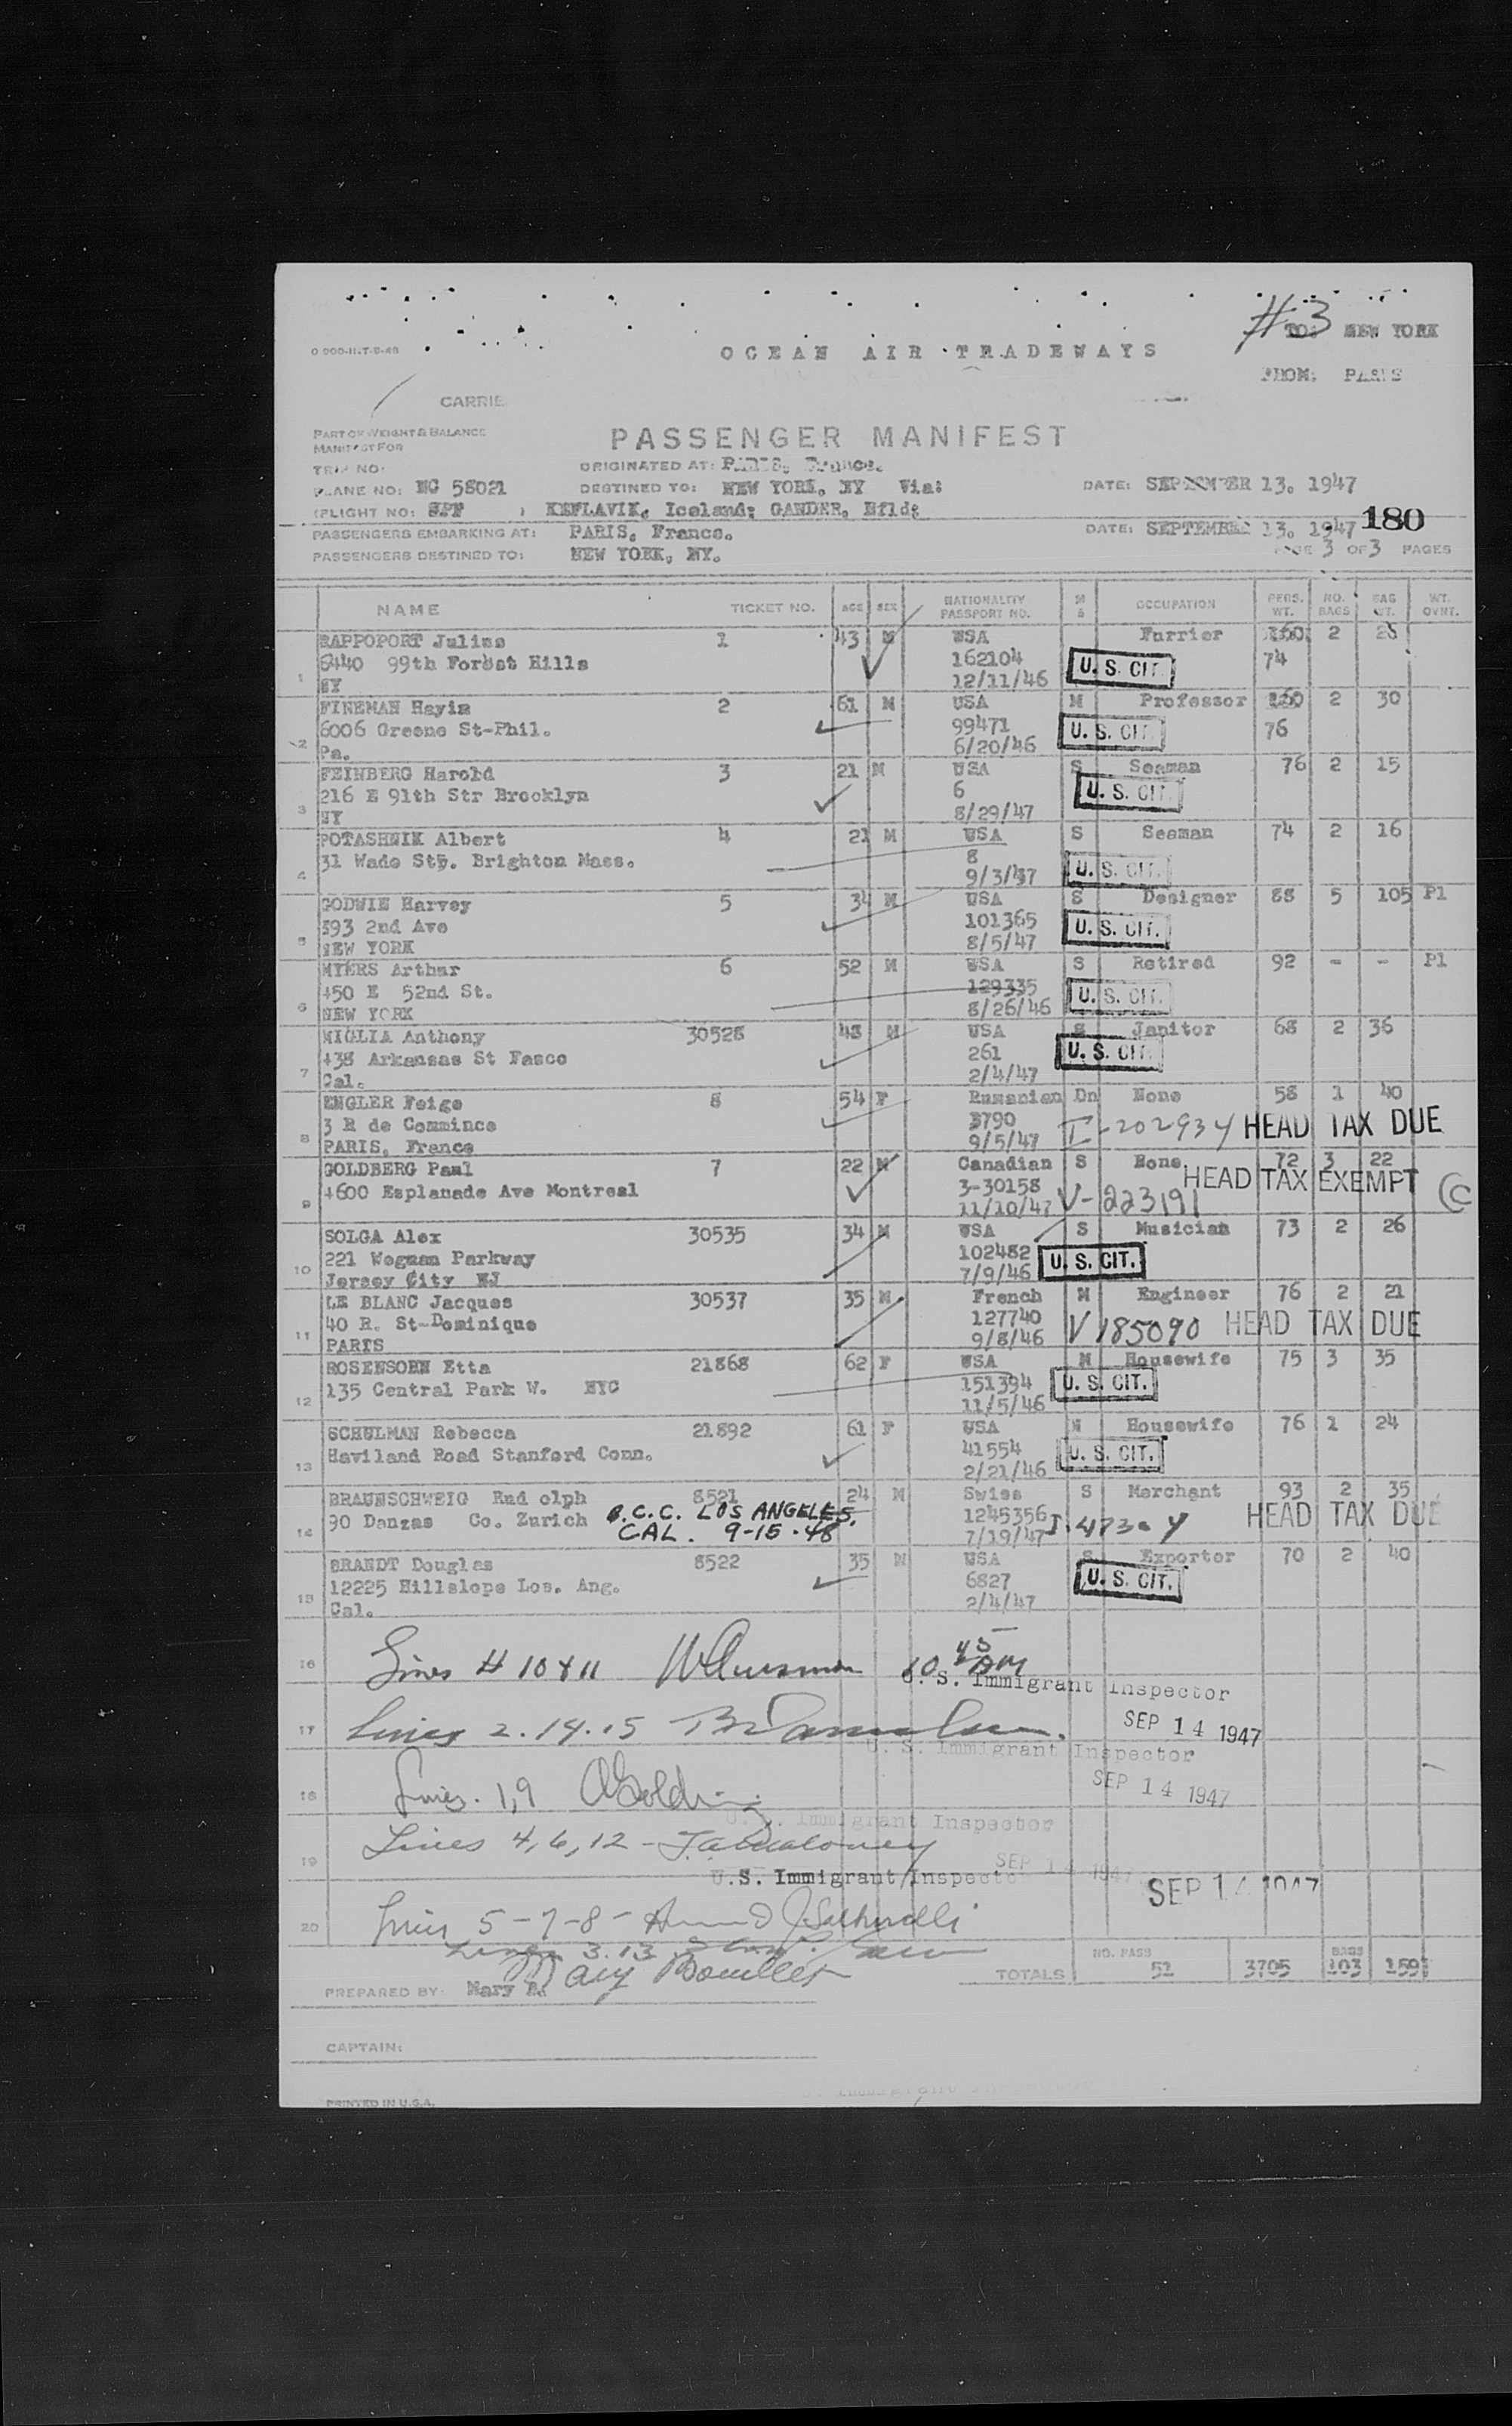 #3
TO: NEW YORK
O 900-11-T-8-46
OCEAN AIR TRADEWAYS
FROM: PARIS
CARRIE
PART OF WEIGHT & BALANCE
MANIFEST FOR
PASSENGER MANIFEST
TRIP NO:
ORIGINATED AT: PARIS, France.
PLANE NO: NC 58021
DESTINED TO: NEW YORK, NY Via:
DATE: SEPTEMBER 13. 1947
(FLIGHT NO: SPF ) KEFLAVIK, Iceland; GANDER, Nfld;
PASSENGERS EMBARKING AT: PARIS, France.
DATE: SEPTEMBER 13. 1947
180
PASSENGERS DESTINED TO: NEW YORK, NY.
PAGE 3 OF 3 PAGES
NAME TICKET NO. AGE SEX NATIONALITY PASSPORT NO. M S OCCUPATION PERS. WT. NO. BAGS BAG WT. WT. OVHT.
RAPPOPORT Julius 1 43 M USA Furrier 160 2 28
6440 99th Forest Hills 162104 U. S. CIT. 74
1 NY 12/11/46
FINEMAN Hayim 2 61 M USA M Professor 160 2 30
6006 Greene St-Phil. 99471 U. S. CIT. 76
2 Pa. 6/20/46
FEINBERG Harold 3 21 M USA S Seaman 76 2 15
216 E 91th Str Brooklyn 6 U. S. CIT.
3 NY 8/29/47
POTASHNIK Albert 4 21 M USA S Seaman 74 2 16
31 Wade Str. Brighton Mass. 8 U. S. CIT.
4 9/3/47
GODWIN Harvey 5 34 M USA S Designer 88 5 105 P1
393 2nd Ave 101365 U. S. CIT.
5 NEW YORK 8/5/47
MYERS Arthur 6 52 M USA S Retired 92 - - P1
450 E 52nd St. 129335 U. S. CIT.
6 NEW YORK 8/26/46
MIGLIA Anthony 30528 48 M USA S Janitor 68 2 36
438 Arkansas St Fasco 261 U. S. CIT.
7 Cal. 2/4/47
ENGLER Feige 8 54 F Rumanian Dn None 58 1 40
3 R de Commince 3790 I-202934 HEAD TAX DUE
8 PARIS, France 9/5/47
GOLDBERG Paul 7 22 M Canadian S None 72 3 22
4600 Esplanade Ave Montreal 3-30158 HEAD TAX EXEMPT C
9 11/10/47 V-223191
SOLGA Alex 30535 34 M USA S Musician 73 2 26
221 Wegman Parkway 102482 U. S. CIT.
10 Jersey City NJ 7/9/46
LE BLANC Jacques 30537 35 M French M Engineer 76 2 21
40 R. St-Dominique 127740 V 185090 HEAD TAX DUE
11 PARIS 9/8/46
ROSENSOHN Etta 21868 62 F USA M Housewife 75 3 35
135 Central Park W. NYC 151394 U. S. CIT.
12 11/5/46
SCHULMAN Rebecca 21892 61 F USA M Housewife 76 1 24
Haviland Road Stanford Conn. 41554 U. S. CIT.
13 2/21/46
BRAUNSCHWEIG Rud olph 8521 24 M Swiss S Merchant 93 2 35
90 Danzas Co. Zurich B.C.C. LOS ANGELES, 1245356 HEAD TAX DUE
14 CAL. 9-15-48 7/19/47
BRANDT Douglas 8522 35 M USA S Exporter 70 2 40
12225 Hillslope Los. Ang. 6827 U. S. CIT.
15 Cal. 2/4/47
16 Lines # 10 & 11 10 45 AM
U. S. Immigrant Inspector
17 Lines 2. 14. 15 SEP 14 1947
U. S. Immigrant Inspector
18 Lines. 1, 9 SEP 14 1947
U. S. Immigrant Inspector
19 Lines 4, 6, 12 - SEP 14 1947
U.S. Immigrant Inspector SEP 14 1947
20 Lines 5-7-8-
Lines 3. 13
TOTALS NO. PASS 51 3705 BAGS 103 1591
PREPARED BY: Mary B.
CAPTAIN:
PRINTED IN U.S.A.